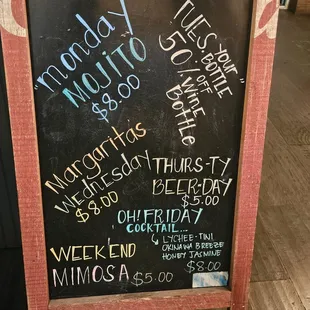 "monday
MOJITO"
$8.00
TUES. YOUR
BOTTLE"
50% OFF
WINE
BOTTLE
Margaritas
WEDNESDAY
$8.00
THURS-TY
BEER-DAY
$5.00
OH! FRIDAY
COCKTAIL...
LYCHEE-TINI
OKINAWA BREEZE
HONEY JASMINE
$8.00
WEEKEND
MIMOSA $5.00